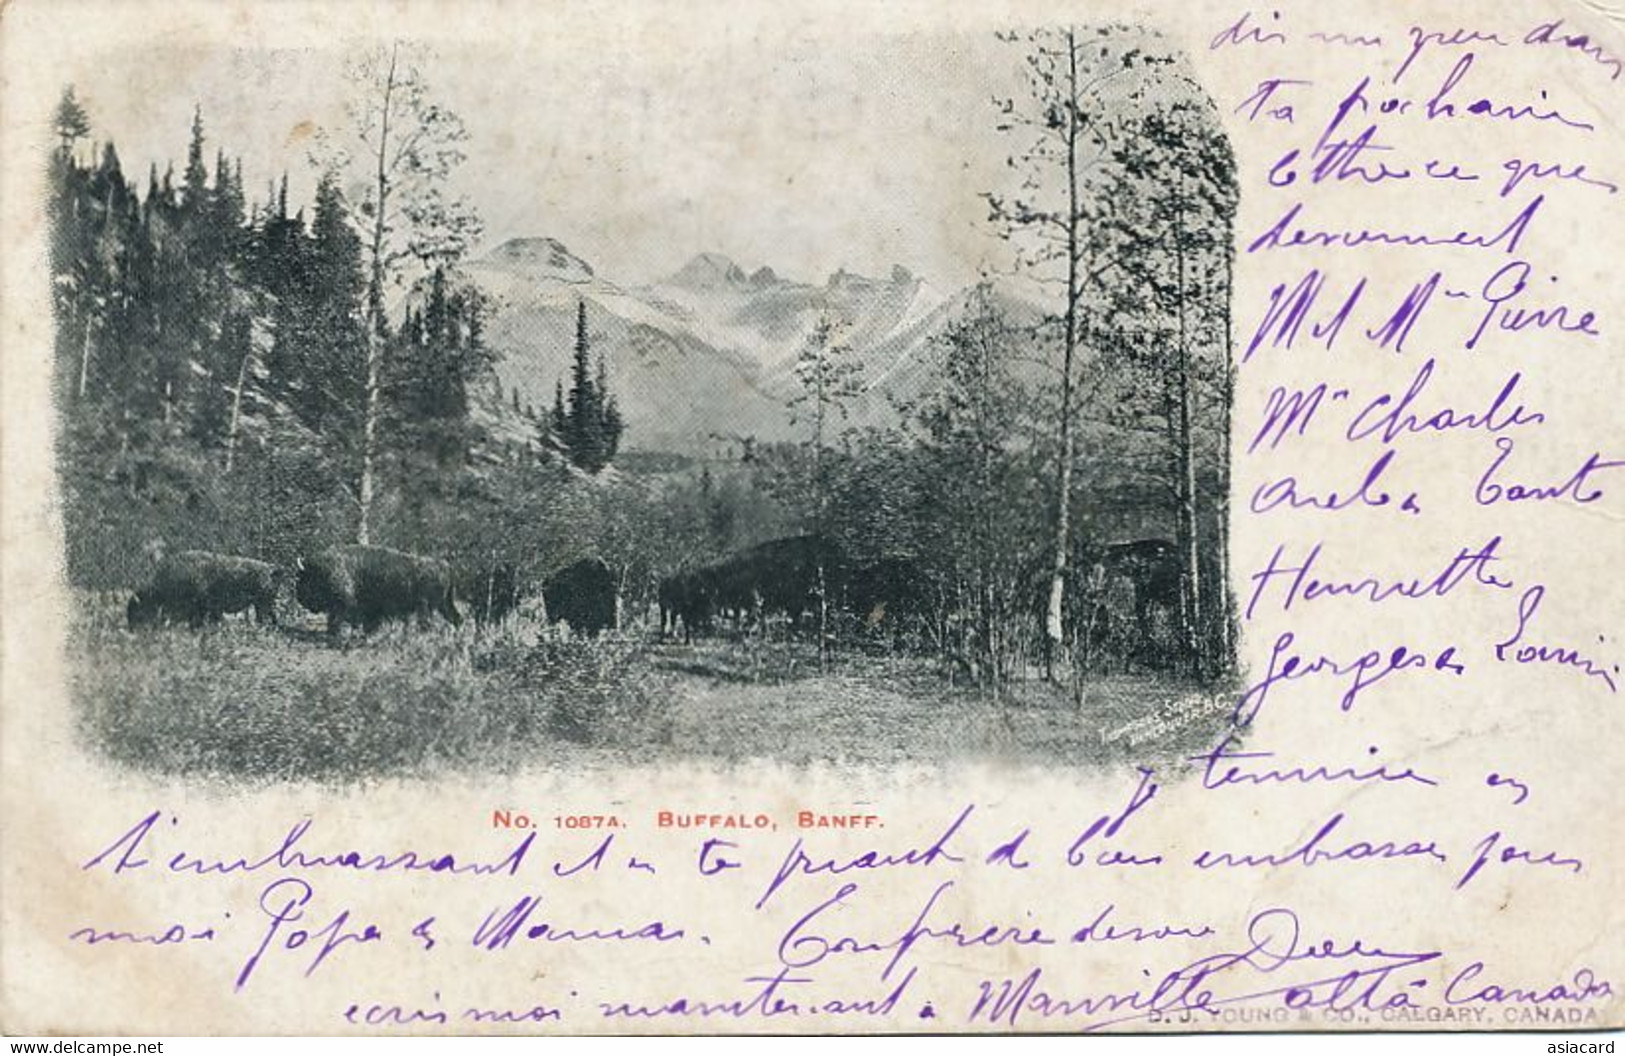 dis un peu dans
ta prochaine
lettre ce que
deviennent
Mr et Mme Pierre
Mme Charles
oncle & Tante
Henriette
Georges & Louis
je termine en
t'embrassant et en te priant de bien embrasser pour
moi Papa & Maman. Ton frère
ecris moi maintenant à Mannville Alta Canada
No. 1087A. Buffalo, Banff.
Vancouver B.C.
D. J. YOUNG & CO., CALGARY, CANADA
delcampe.net
asiacard